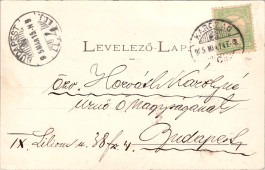 LEVELEZŐ-LAP
özv. Horváth Károlyné
urnő ő nagyságának
Budapest
IX. Liliom u. 38 fsz 4
BUDAPEST